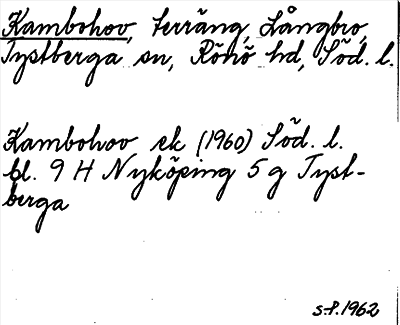 Kambohov, terräng, Långbro,
Tystberga sn, Rönö hd, Söd. l.
Kambohov ek (1960) Söd. l.
bl. 9 H Nyköping 5 g Tyst-
berga
s.P. 1962